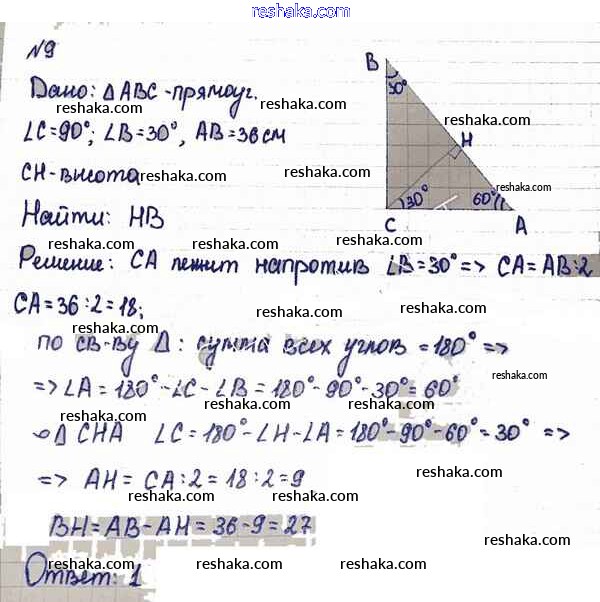 reshaka.com
№9
reshaka.com
Дано: △ABC - прямоуг.
reshaka.com
∠C=90°; ∠B=30°, AB=36см
reshaka.com
CH-высота
reshaka.com
Найти: HB
reshaka.com
B
30°
reshaka.com
H
reshaka.com
30°
60°
C
A
reshaka.com
reshaka.com
Решение: CA лежит напротив ∠B=30° => CA=AB:2
reshaka.com
reshaka.com
CA=36:2=18;
reshaka.com
reshaka.com
по св-ву △: сумма всех углов =180° =>
reshaka.com
reshaka.com
reshaka.com
=> ∠A=180°-∠C-∠B=180°-90°-30°=60°
reshaka.com
reshaka.com
reshaka.com
△ CHA ∠C=180°-∠H-∠A=180°-90°-60°=30° =>
reshaka.com
reshaka.com
=> AH= CA:2=18:2=9
reshaka.com
reshaka.com
reshaka.com
BH=AB-AH=36-9=27
reshaka.com
reshaka.com
Ответ: 1
reshaka.com
reshaka.com
reshaka.com